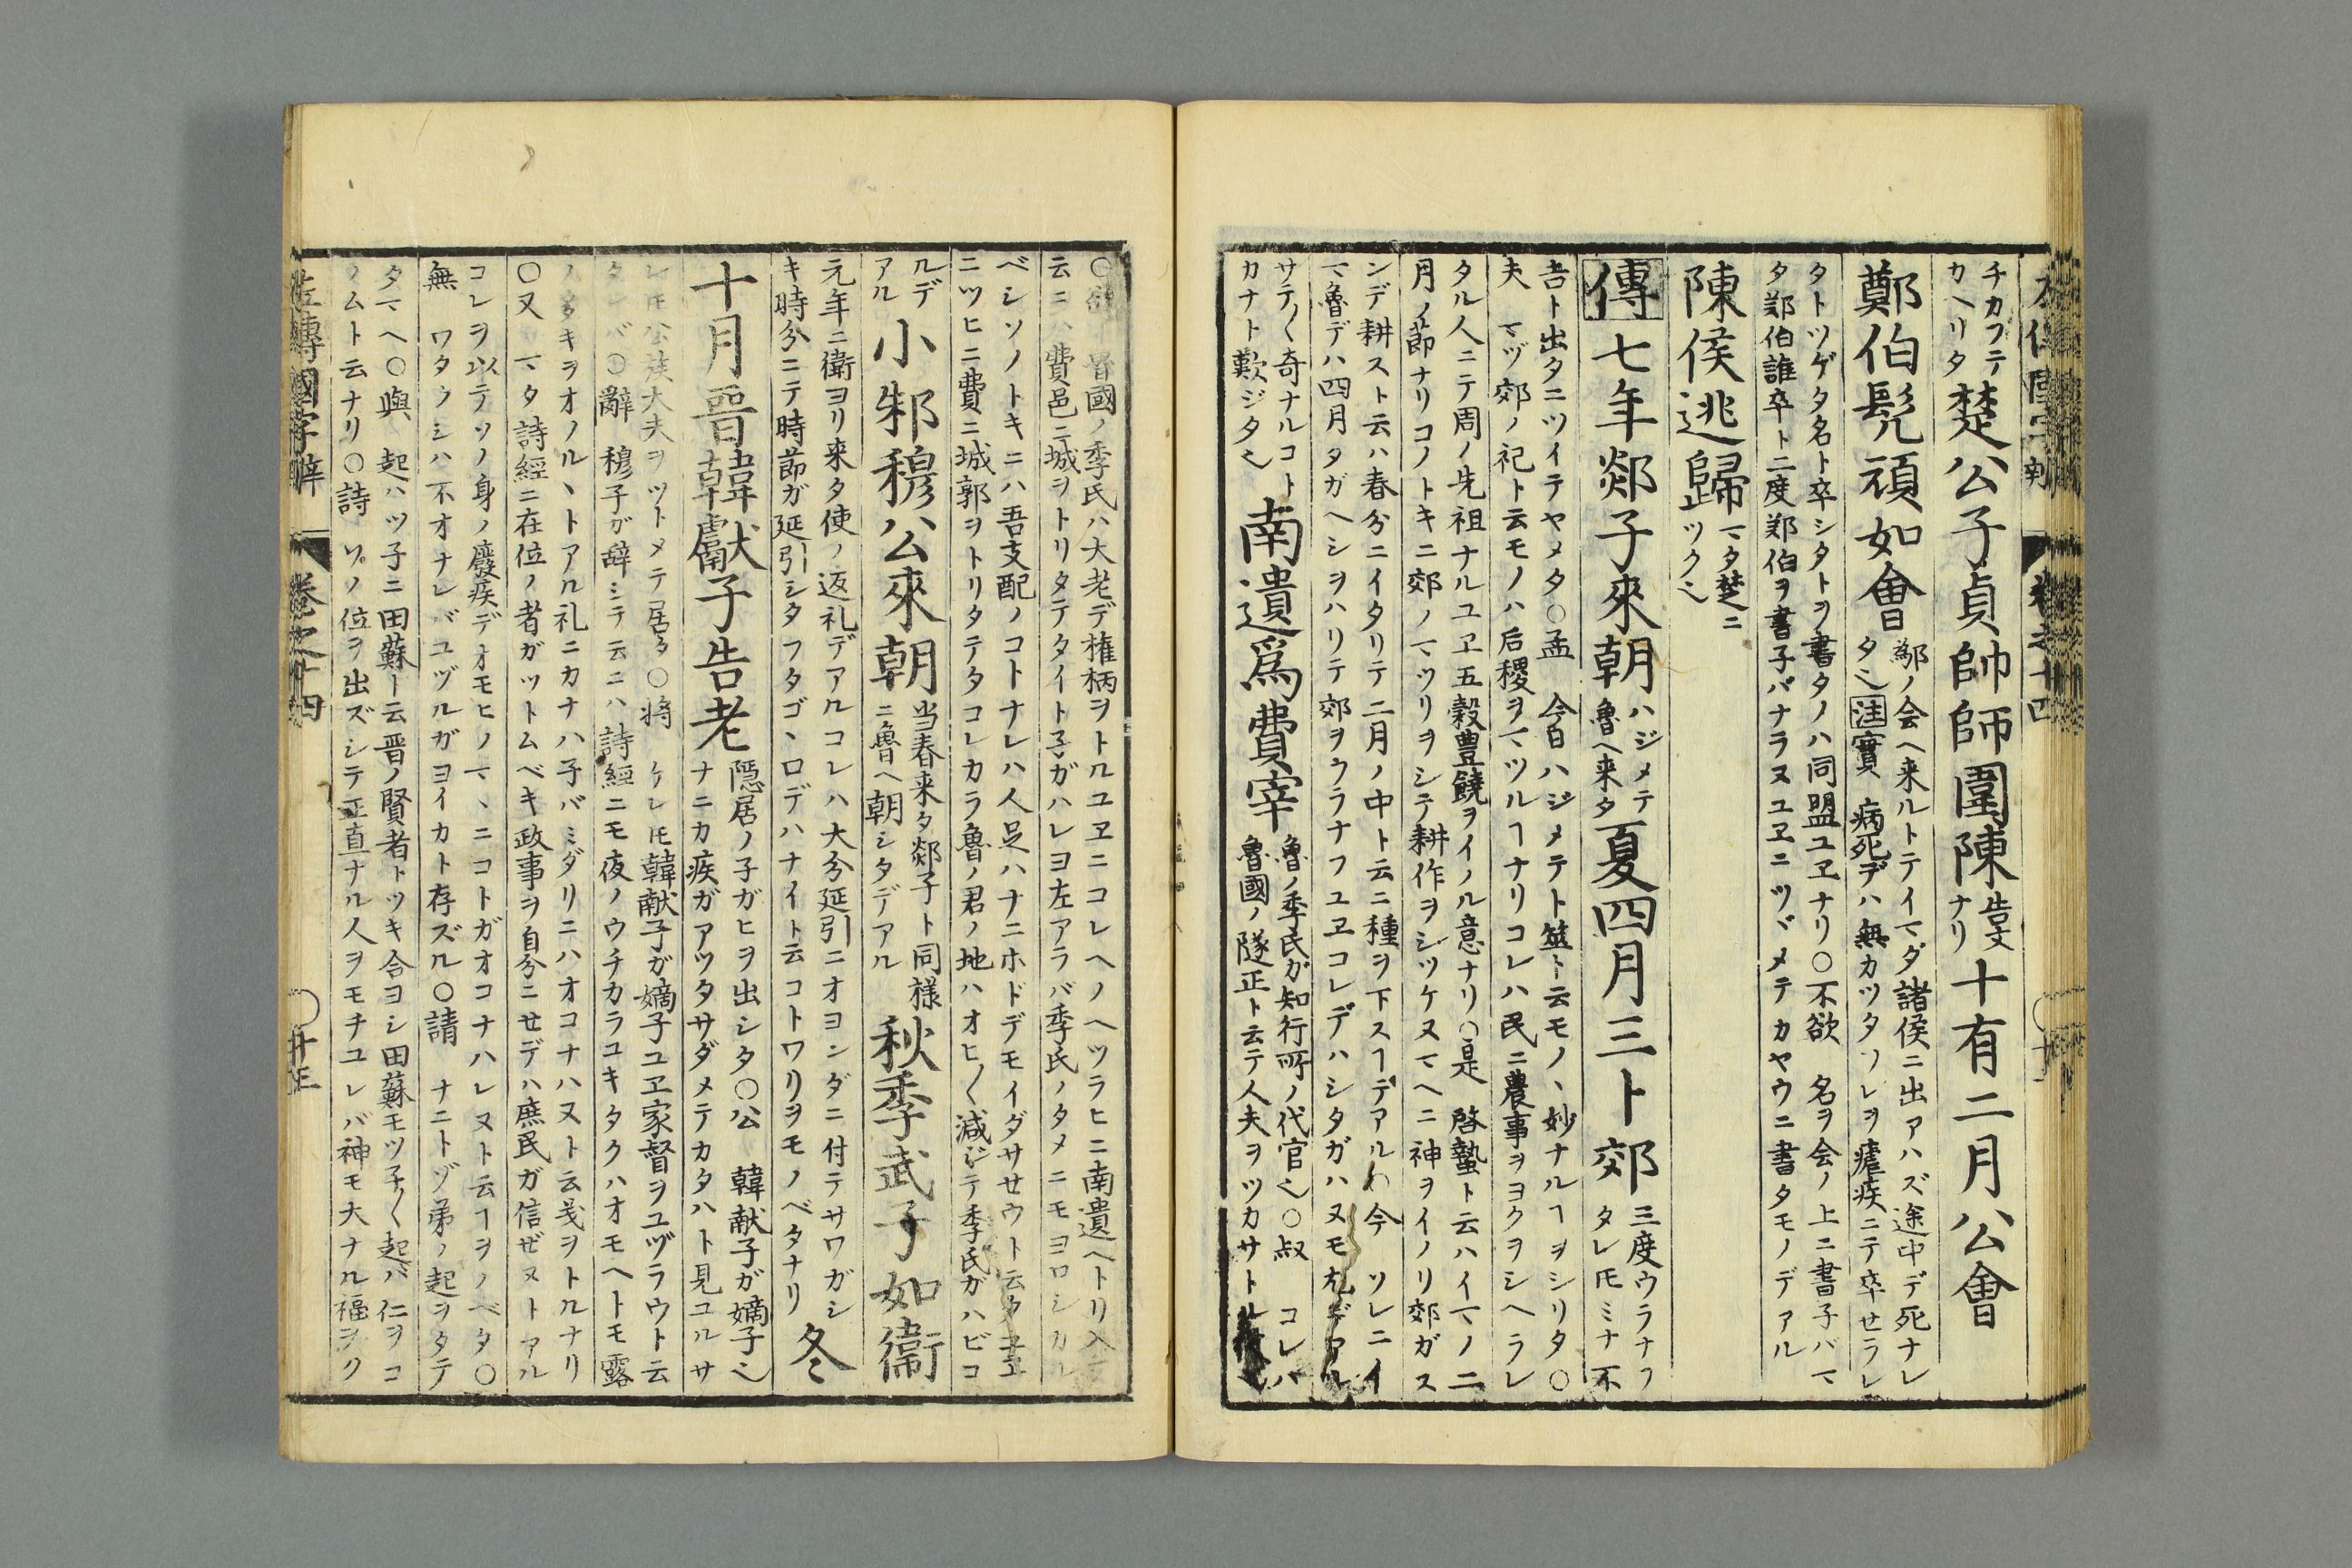 チカフテ
カヘリタ
楚公子貞帥師圍陳
告文
ナリ
十有二月公會
鄭伯髠頑如會
鄬ノ会ヘ来ルトテイマダ諸侯ニ出アハズ途中デ死ナレ
タ也注實 病死デハ無カツタソレヲ瘧疾ニテ卒セラレ
タトツゲタ名ト卒シタトヲ書タノハ同盟ユヱナリ○不欲 名ヲ会ノ上ニ書子バマ
タ鄭伯誰卒ト二度鄭伯ヲ書子バナラヌユヱニツヾメテカヤウニ書タモノデアル
陳侯逃歸
マタ楚ニ
ツク也
傳七年郯子來朝
ハジメテ
魯ヘ来タ
夏四月三卜郊
三度ウラナフ
タレ𪜈ミナ不
吉ト出タニツイテヤメタ○孟 今日ハジメテト筮ト云モノヽ妙ナルヿヲシリタ○
夫 マヅ郊ノ祀ト云モノハ后稷ヲマツルヿナリコレハ民ニ農事ヲヨクヲシヘラレ
タル人ニテ周ノ先祖ナルユヱ五穀豊饒ヲイノル意ナリ○是 啓蟄ト云ハイマノ二
月ノ節ナリコノトキニ郊ノマツリヲシテ耕作ヲシツケヌマヘニ神ヲイノリ郊ガス
ンデ耕スト云ハ春分ニイタリテ二月ノ中ト云ニ種ヲ下スヿデアル今 ソレニイ
マ魯デハ四月タガヘシヲハリテ郊ヲウラナフユヱコレデハシタガハヌモ札デアル
サテ〱奇ナルコト
カナト歎ジタ也
南遺爲費宰
魯ノ季氏ガ知行所ノ代官也○叔 コレハ
魯國ノ隧正ト云テ人夫ヲツカサトル
○欲 晋國ノ季氏ハ大老デ権柄ヲトルユヱニコレヘノヘツラヒニ南遺ヘトリ入テ
云ニハ費邑ニ城ヲトリタテタイト子ガハレヨ左アラバ季氏ノタメニモヨロシカル
ベシソノトキニハ吾支配ノコトナレハ人足ハナニホドデモイダサセウト云タユヱ
ニツヒニ費ニ城郭ヲトリタテタコレカラ魯ノ君ノ地ハオヒ〱減ジテ季氏ガハビコ
ルデ
アル
小邾穆公來朝
当春来タ郯子ト同様
ニ魯ヘ朝シタデアル
秋季武子如衞
元年ニ衛ヨリ来タ使ノ返礼デアルコレハ大分延引ニオヨンダニ付テサワガシ
キ時分ニテ時節ガ延引シタフタゴヽロデハナイト云コトワリヲモノベタナリ
冬
十月晉韓獻子告老
隠居ノ子ガヒヲ出シタ○公 韓献子ガ嫡子也
ナニカ疾ガアツタサダメテカタハト見ユルサ
レ𪜈公族大夫ヲツトメテ居タ○将 ケレ𪜈韓献子ガ嫡子ユヱ家督ヲユヅラウト云
タレバ○辭 穆子ガ辞シテ云ニハ詩經ニモ夜ノウチカラユキタクハオモヘトモ露
ノ多キヲオソルヽトアル礼ニカナハ子バミダリニハオコナハヌト云義ヲトルナリ
○又 マタ詩經ニ在位ノ者ガツトムベキ政事ヲ自分ニセデハ庶民ガ信ゼヌトアル
コレヲ以テソノ身ノ廢疾デオモヒノマヽニコトガオコナハレヌト云ヿヲノベタ○
無 ワタクシハ不オナレバユヅルガヨイカト存ズル○請 ナニトゾ弟ノ起ヲタテ
タマヘ○與 起ハツ子ニ田蘇ト云晋ノ賢者トツキ合ヨシ田蘇モツ子〱起バ仁ヲコ
ノムト云ナリ○詩 ソノ位ヲ出ズシテ正直ナル人ヲモチユレバ神モ大ナル福ヲク
左傳國字辯 卷之十四